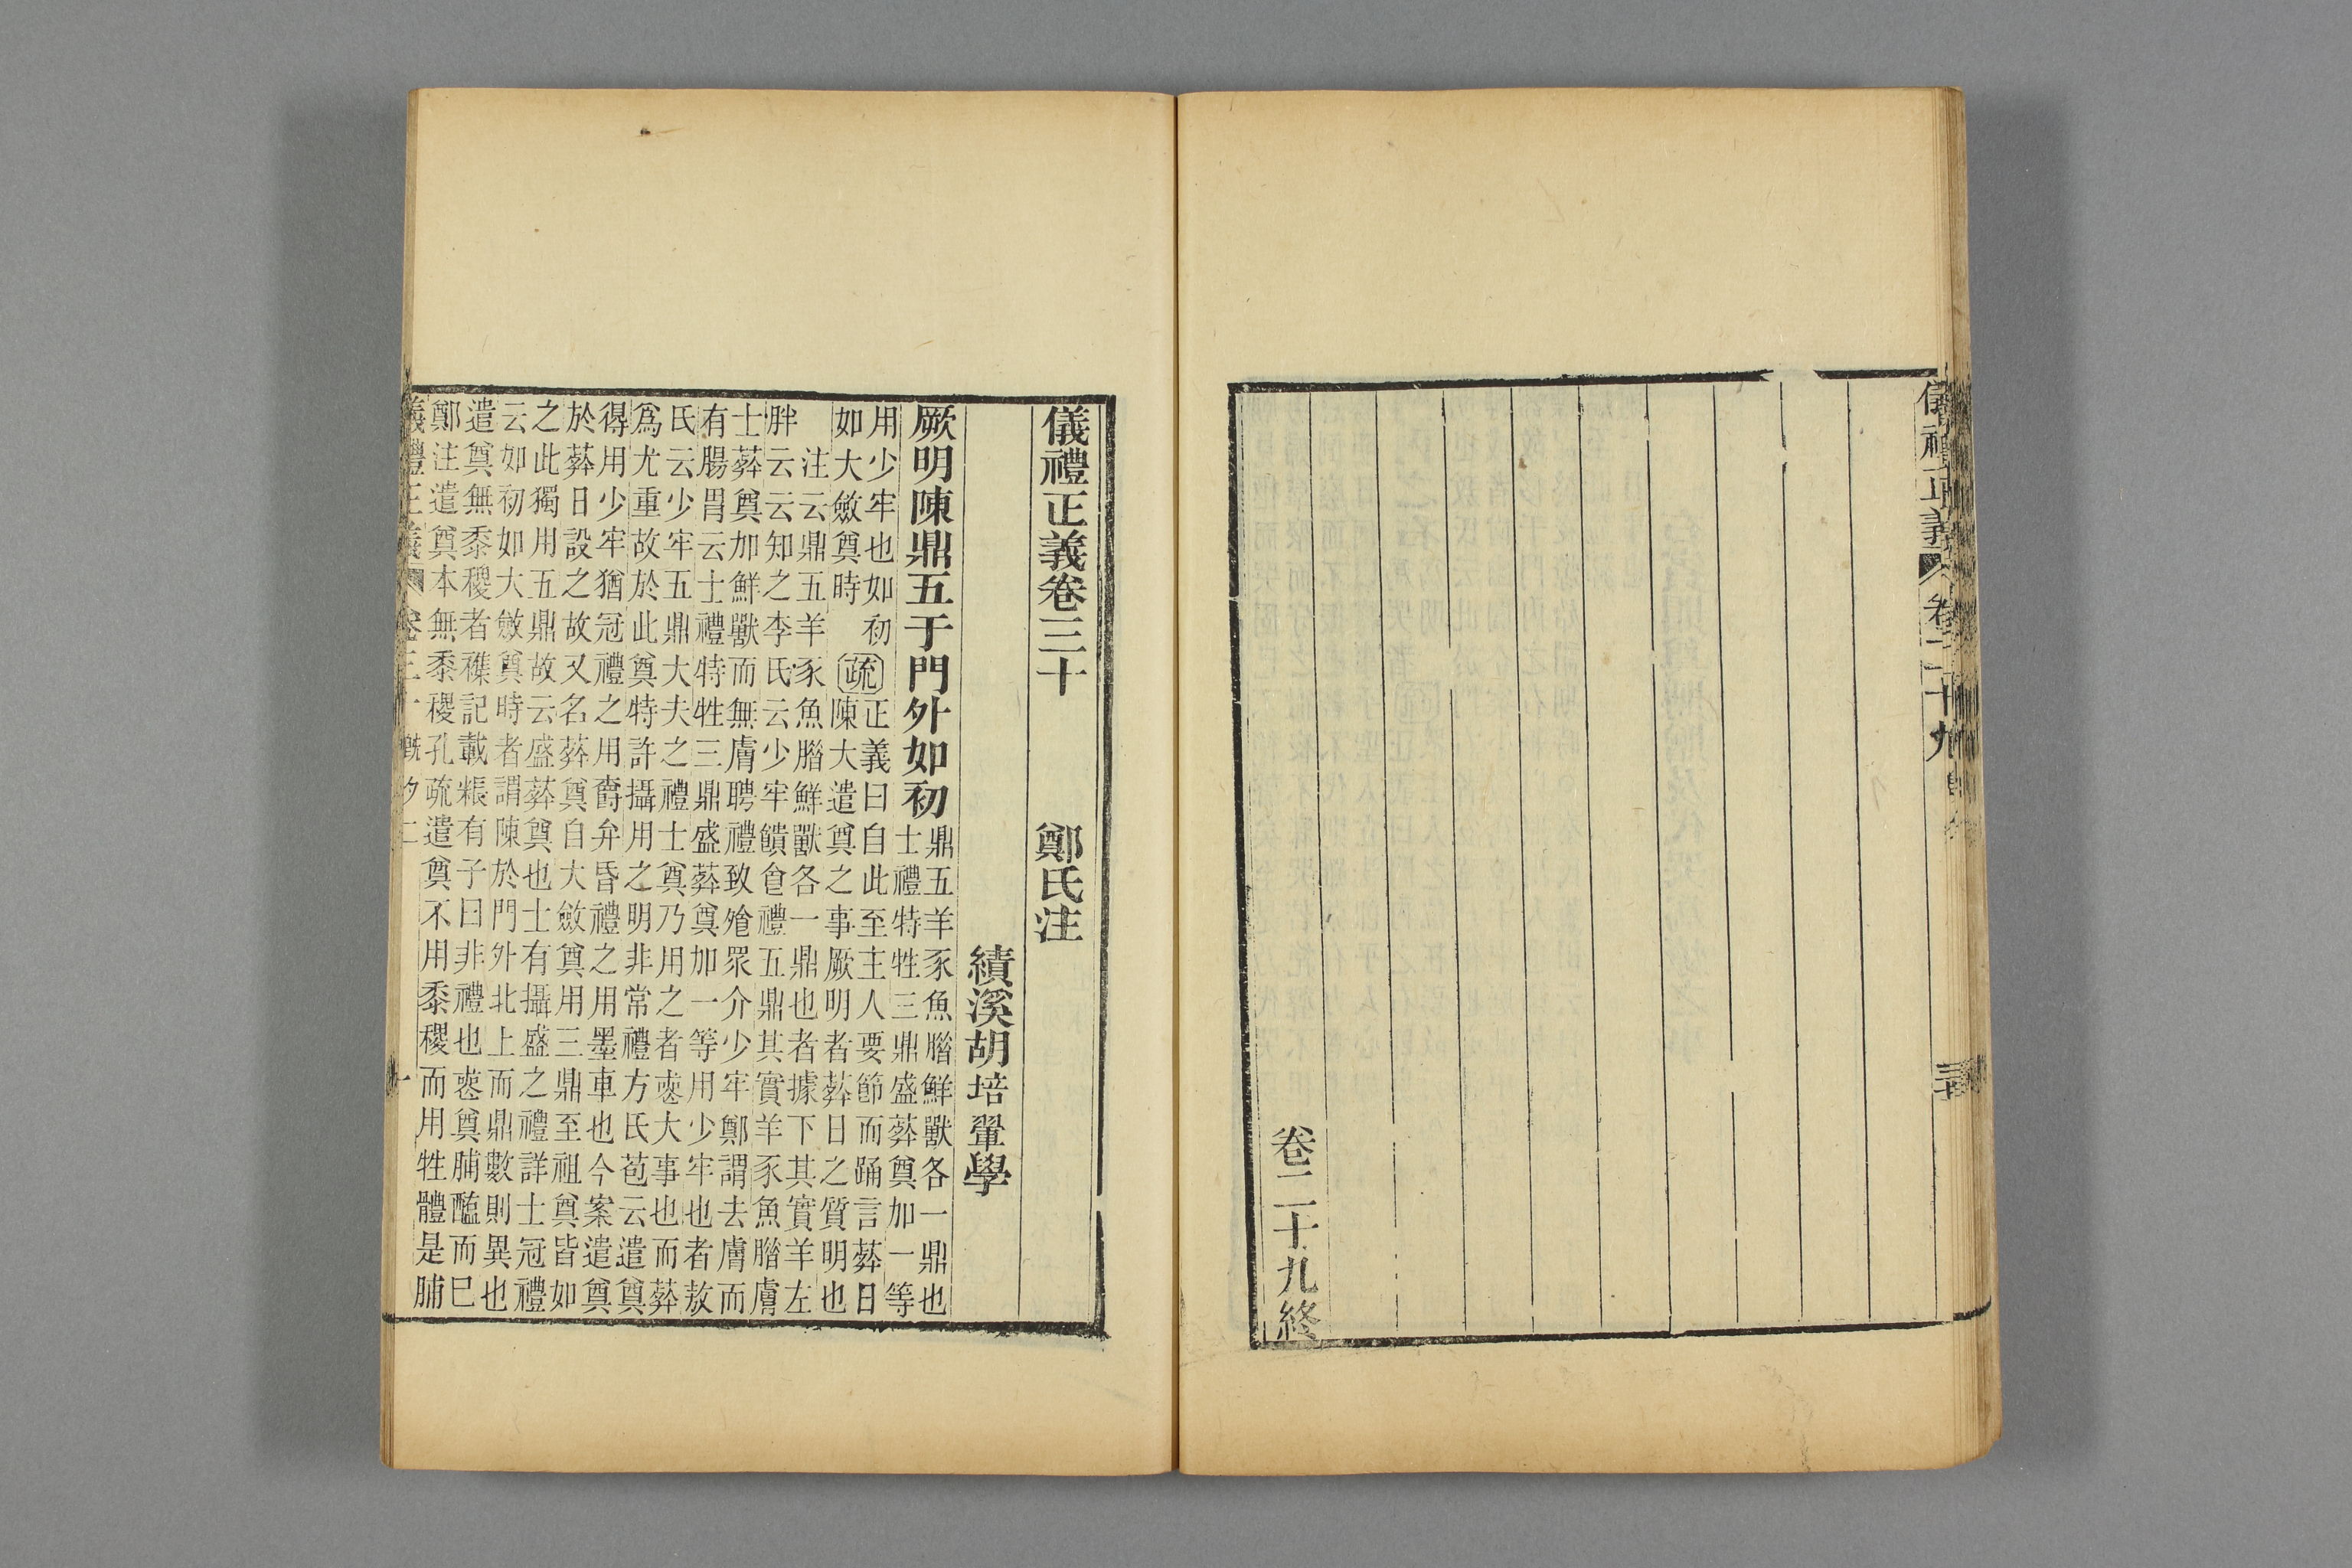 儀禮正義 卷二十九
卷二十九終
儀禮正義卷三十 鄭氏注
績溪胡培翬學
厥明陳鼎五于門外如初
鼎五羊豕魚腊鮮獸各一鼎也
士禮特牲三鼎盛葬奠加一等
用少牢也如初
如大斂奠時
疏
正義曰自此至主人要節而踊言葬日
陳大遣奠之事厥明者葬日之質明也
注云鼎五羊豕魚腊鮮獸各一鼎也者據下其實羊左
胖云云知之李氏云少牢饋食禮五鼎其實羊豕魚腊膚
士葬奠加鮮獸而無膚聘禮致飧眾介少牢鄭謂去膚而
有腸胃云士禮特牲三鼎盛葬奠加一等用少牢也者敖
氏云少牢五鼎大夫之禮士奠乃用之者喪大事也而葬
爲尤重故於此奠特許攝用之明非常禮方氏苞云遣奠
得用少牢猶冠禮之用爵弁昏禮之用墨車也今案遣奠
於葬日設之故又名葬奠自大斂奠用三鼎至祖奠皆如
之此獨用五鼎故云盛葬奠也士有攝盛之禮詳士冠禮
云如初如大斂奠時者謂陳於門外北上而鼎數則異也
遣奠無黍稷者襍記載粻有子曰非禮也喪奠脯醢而已
鄭注遣奠本無黍稷孔疏遣奠不用黍稷而用牲體是脯
儀禮正義 卷三十 既夕二 一